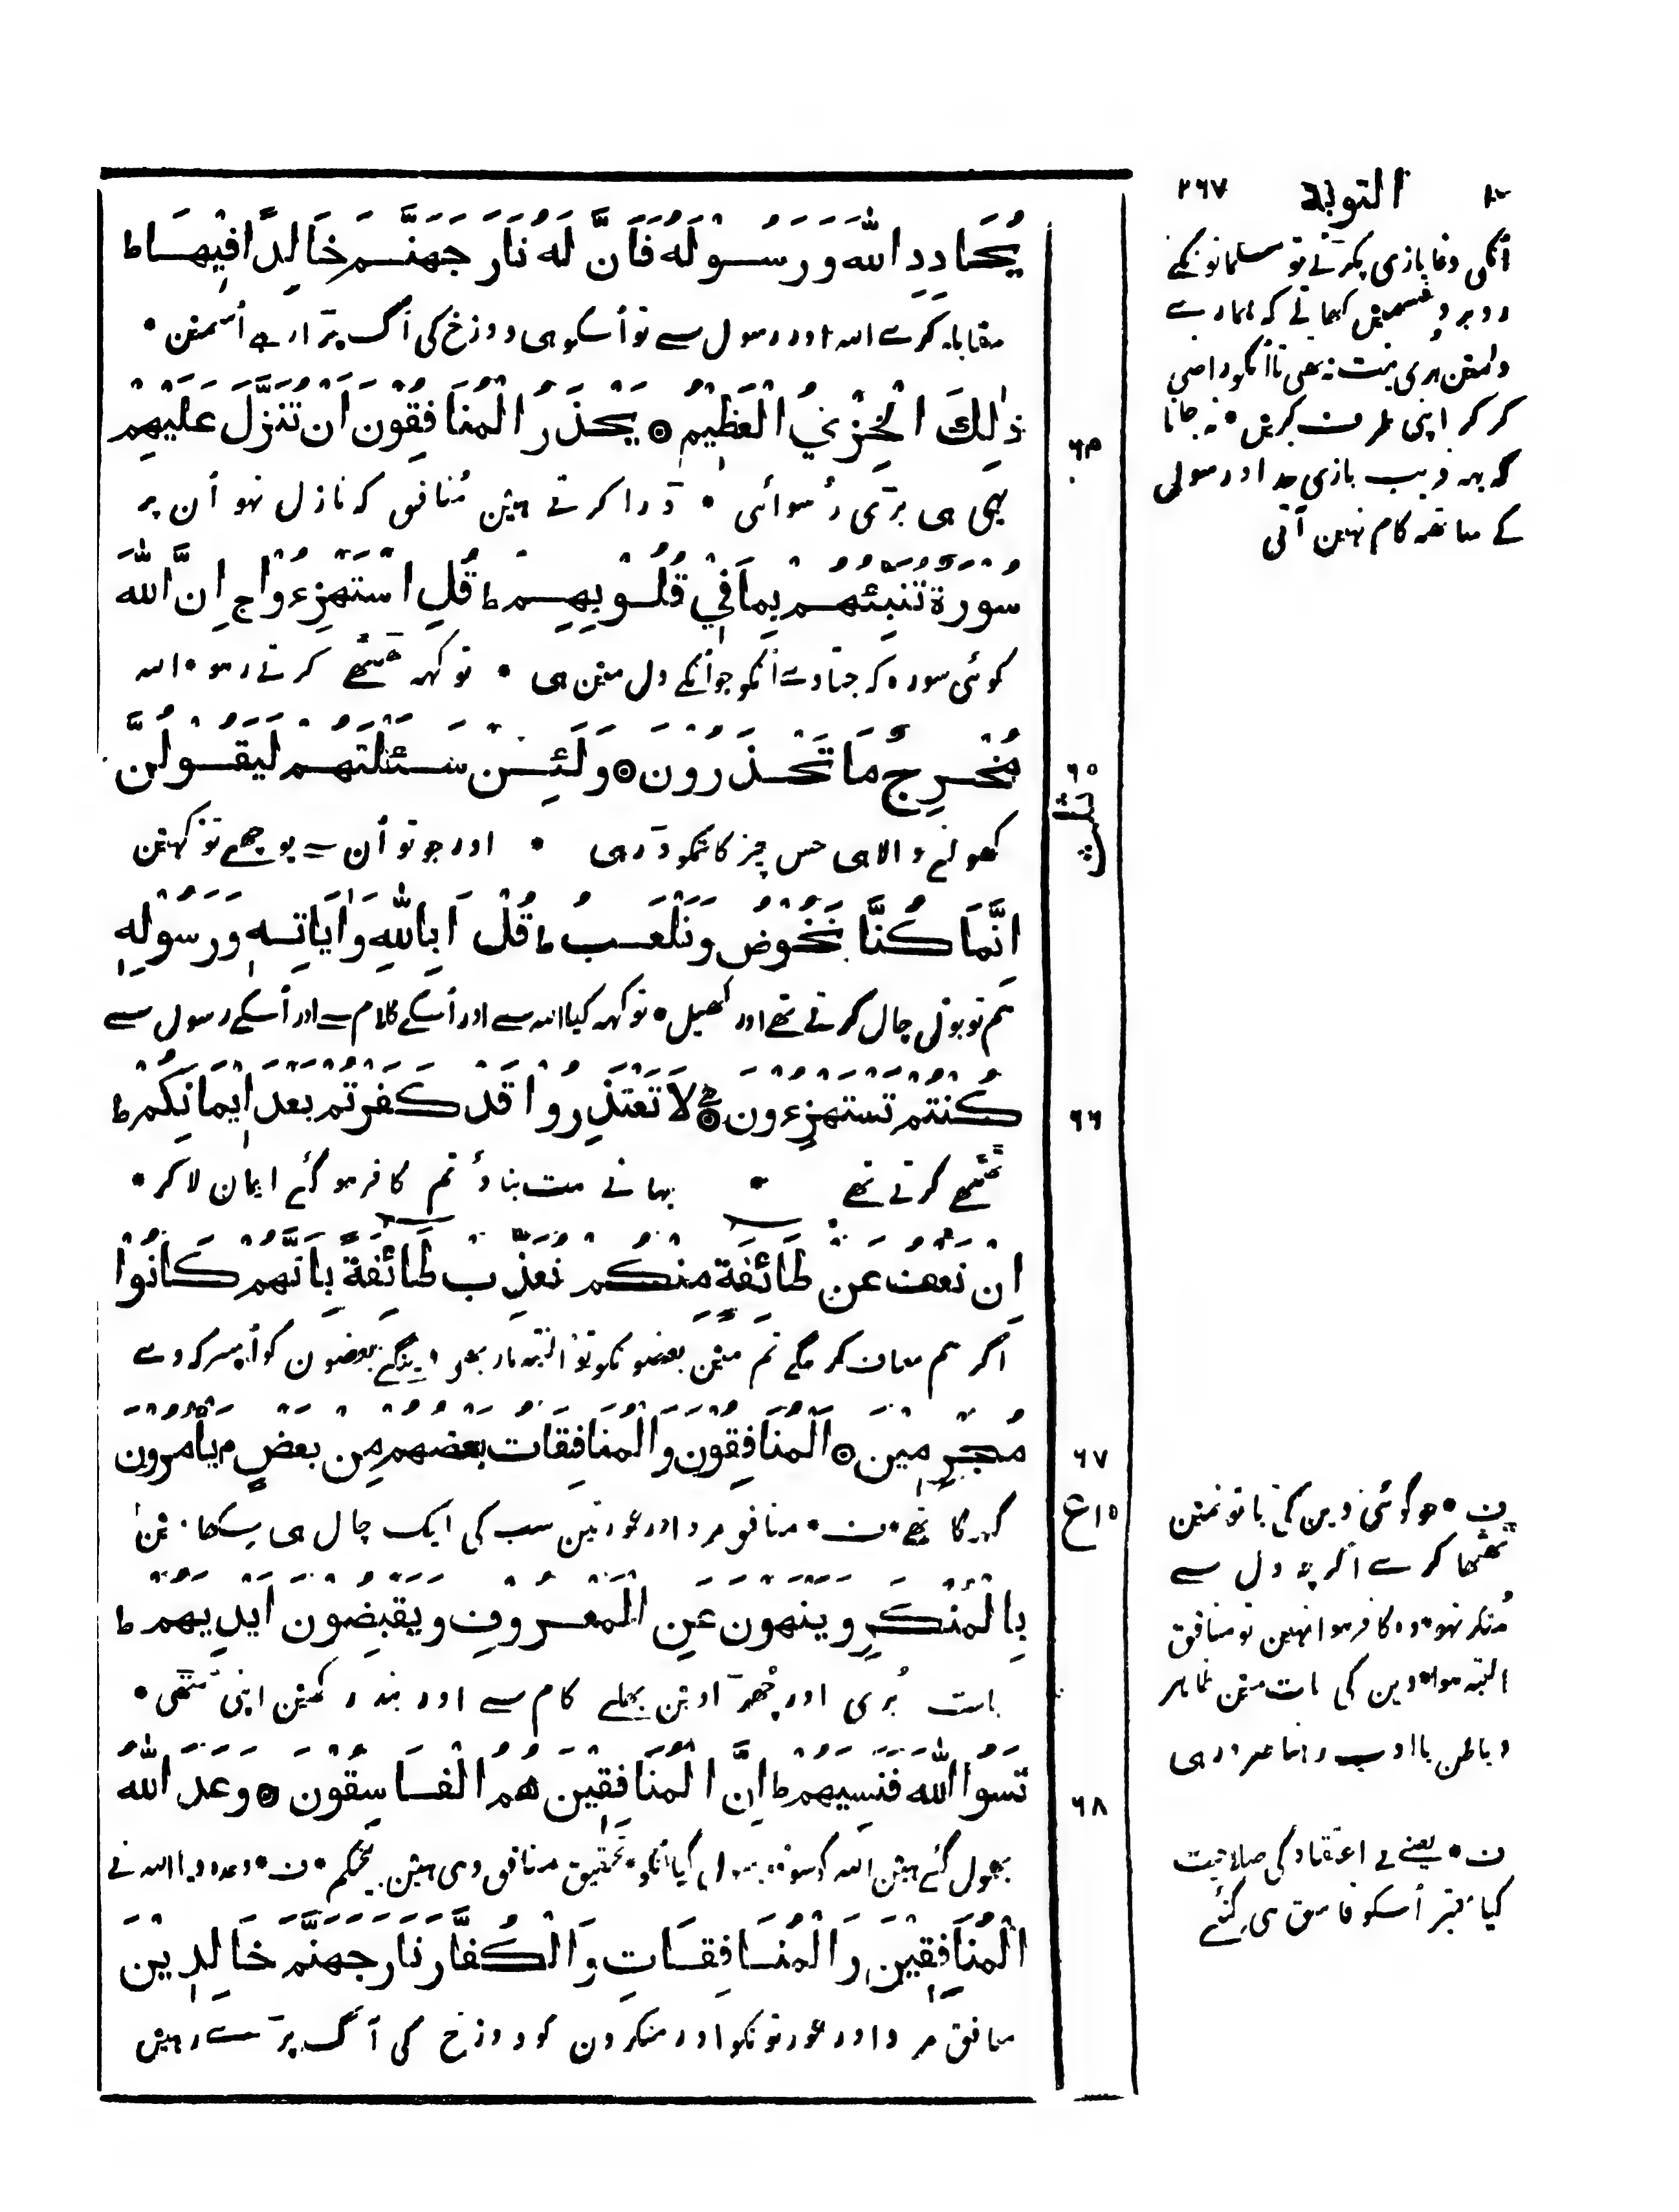 ١٠ التوبة ٢٦٧
يُحَادِدِ اللّٰهَ وَرَسُوْلَهُ فَاَنَّ لَهُ نَارَ جَهَنَّمَ خَالِدًا فِيْهَا ط
مقابلہ کرے اللہ اور رسول سے تو اُسکو ہی دوزخ کی آگ پڑا رہے اُسمین •
ذٰلِكَ الْخِزْيُ الْعَظِيْمُ ۞ يَحْذَرُ الْمُنَافِقُوْنَ اَنْ تُنَزَّلَ عَلَيْهِمْ
٦٤
یہی ہی بڑی رُسوائی • ڈرا کرتے ہین مُنافق کہ نازل نہو اُن پر
سُوْرَةٌ تُنَبِّئُهُمْ بِمَا فِيْ قُلُوْبِهِمْ ط قُلِ اسْتَهْزِءُوْا ج اِنَّ اللّٰهَ
کوئی سورہ کہ جتادے اُنکو جو اُنکے دل مین ہی • تو کہہ ٹھٹھے کرتے رہو • اللہ
مُخْرِجٌ مَا تَحْذَرُوْنَ ۞ وَلَئِنْ سَئَلْتَهُمْ لَيَقُوْلُنَّ
٦٥
ثلث
کھولنے والا ہی جس چیز کا تمکو ڈر ہی • اور جو تو اُن سے پوچھے تو کہین
اِنَّمَا كُنَّا نَخُوْضُ وَنَلْعَبُ ط قُلْ اَبِاللّٰهِ وَاٰيَاتِهٖ وَرَسُوْلِهٖ
ہم تو بول چال کرتے تھے اور کھیل • تو کہہ کیا اللہ سے اور اُسکے کلام سے اور اُسکے رسول سے
كُنْتُمْ تَسْتَهْزِءُوْنَ ۞ لَا تَعْتَذِرُوْا قَدْ كَفَرْتُمْ بَعْدَ اِيْمَانِكُمْ ط
٦٦
ٹھٹھے کرتے تھے • بہانے مت بناؤ تم کافر ہو گئے ایمان لا کر •
اِنْ نَعْفُ عَنْ طَائِفَةٍ مِنْكُمْ نُعَذِّبْ طَائِفَةً بِاَنَّهُمْ كَانُوْا
اگر ہم معاف کرینگے تم مین بعضونکو تو البتہ مار بھی دینگے بعضون کو اُسپر کہ وے
مُجْرِمِيْنَ ۞ اَلْمُنَافِقُوْنَ وَالْمُنَافِقَاتُ بَعْضُهُمْ مِنْ بَعْضٍ م يَأْمُرُوْنَ
٦٧
ع ١٥
گنہگار تھے • ف • منافق مرد اور عورتین سب کی ایک چال ہی سکھائین
بِالْمُنْكَرِ وَيَنْهَوْنَ عَنِ الْمَعْرُوْفِ وَيَقْبِضُوْنَ اَيْدِيَهُمْ ط
بات بُری اور چھڑاوین بھلے کام سے اور بند رکھین اپنی مُٹھی •
نَسُوا اللّٰهَ فَنَسِيَهُمْ ط اِنَّ الْمُنَافِقِيْنَ هُمُ الْفَاسِقُوْنَ ۞ وَعَدَ اللّٰهُ
٦٨
بھول گئے ہین اللہ کو سو وہ بھول گیا اُنکو • تحقیق منافق وہی ہین بیحکم • ف • وعدہ دیا اللہ نے
الْمُنَافِقِيْنَ وَالْمُنَافِقَاتِ وَالْكُفَّارَ نَارَ جَهَنَّمَ خَالِدِيْنَ
منافق مرد اور عورتونکو اور منکرون کو دوزخ کی آگ پڑے رہین
اُنکی دغابازی پکڑتے تو مسلمانونکے
روبرو قسمین کھاتے کہ ہمارے
دلمین بری نیت نہ تھی تا اُنکو راضی
کر کر اپنی طرف کرین • نہ جانا
کہ یہہ فریب بازی خدا اور رسول
کے ساتھہ کام نہین آتی
ف • جو کوئی دین کی باتونمین
ٹھٹھا کرے اگرچہ دل سے
مُنکر نہو وہ کافر ہوا نہین تو منافق
البتہ ہوا • دین کی بات مین ظاہر
و باطن باادب رہنا ضرور ہی
ف • یعنے بے اعتقاد کی صلاحیت
کیا معتبر اُسکو فاسق ہی گنئے